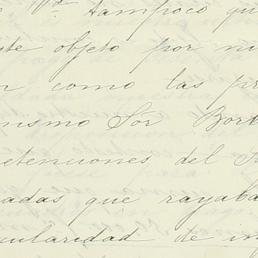 Vd. tampoco qu
ste objeto por ni
n como las pr
mismo Sor Bor
etenciones del S
adas que rayaba
cularidad de in